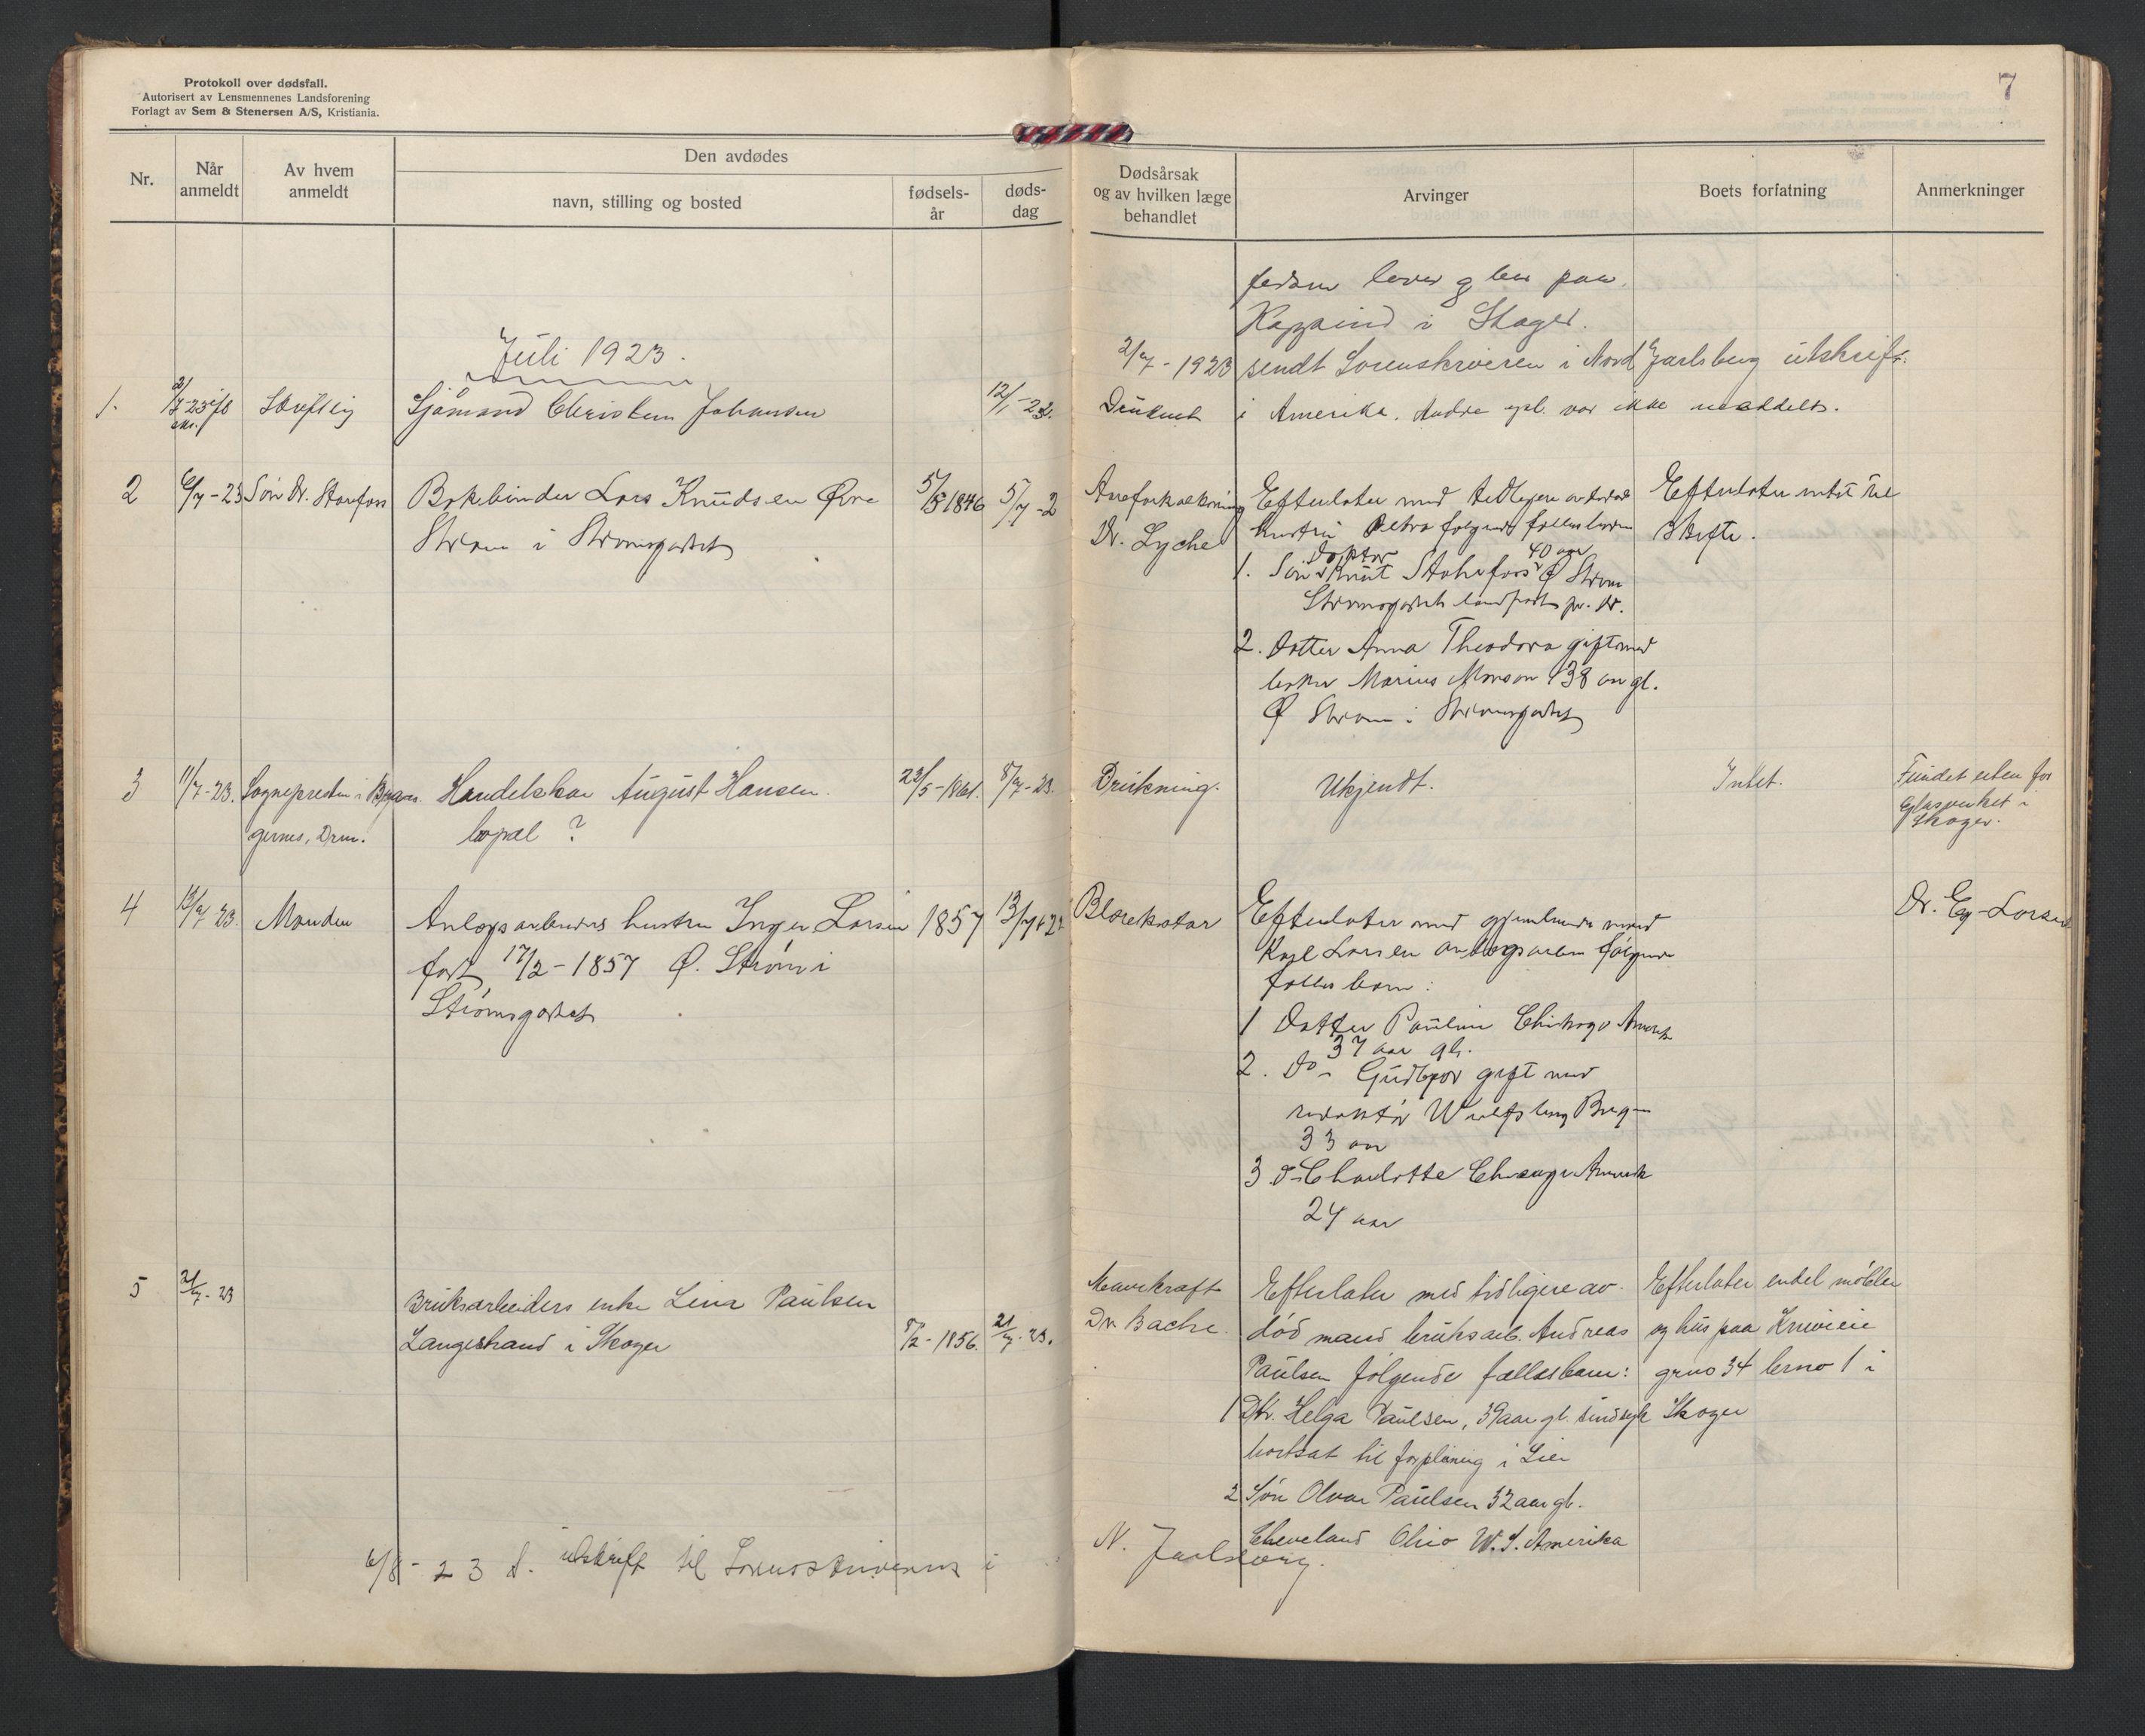 Protokoll over dødsfall.
Autorisert av Lensmennenes Landsforening
Forlagt av Sem & Stenersen A/S, Kristiania.
7
Nr.
Når
anmeldt
Av hvem
anmeldt
Den avdødes
navn, stilling og bosted
fødsels-
år
døds-
dag
Dødsårsak
og av hvilken læge
behandlet
Arvinger
Boets forfatning
Anmerkninger
lever og bor paa
i Skoger.
Juli 1923.
2/7-1923 sendt Sorenskriveren i Nord Jarlsberg utskrift.
1.
Sjømand Christian Johansen
12/1-23.
Druknet
i Amerika. Andre opl. var ikke meddelt.
2
6/7-23
Søn Dr.
Bokbinder Lars Knudsen Øvre
Strøm i Strømsgodset
5/5 1846
5/7-2
Areforkalkning
Dr. Lyche
Efterlater med tidligere avdøde
hustru Petra følgende fællesbarn
Doktor 40 aar
1. Søn Knut Ø Strøm
Strømsgodset landpost pr. Dr.
2. Datter Anna Theodora gift med
Marius 38 aar gl.
Ø Strøm i Strømsgodset
Efterlater intet til
Skifte.
3
11/7-23.
Sognepresten i Brage
gernes, Drm.
Handelskar August Hansen.
bopæl ?
23/5-1861.
8/7-23.
Drukning.
Ukjendt.
Intet.
Fundet uten for
Glasverket i
Skoger.
4
13/7-23.
Manden
Anlægsarbeiders hustru Inger Larsen
født 17/2-1857 Ø. Strøm i
Strømsgodset
1857
13/7-23
Blærekatar
Efterlater med gjenlevende mand
Karl Larsen anlægsarbeider følgende
fælles barn:
1 Datter Pauline Chikago Amerika
37 aar gl.
2. Do- Gudbjør gift med
redaktør
33 aar
3 Do- Charlotte Chicago Amerika
24 aar
Dr. Eg-Larsen
5
21/7-23
Bruksarbeiders enke Lina Paulsen
Langestrand i Skoger
8/2-1856.
21/7-23.
Mavekræft
Dr. Bache.
Efterlater med tidligere av-
død mand bruksarb. Andreas
Paulsen følgende fællesbarn:
1 Dtr. Helga Paulsen, 39 aar gl. sindssyk
bortsat til forpleining i Lier
2 Søn Olvar Paulsen 32 aar gl.
Cheveland Ohio W. S. Amerika
Efterlater endel møbler
og hus paa
grno 34 brno 1 i
Skoger
6/8-23 s. utskrift til Sorenskriveren i
N. Jarlsberg.